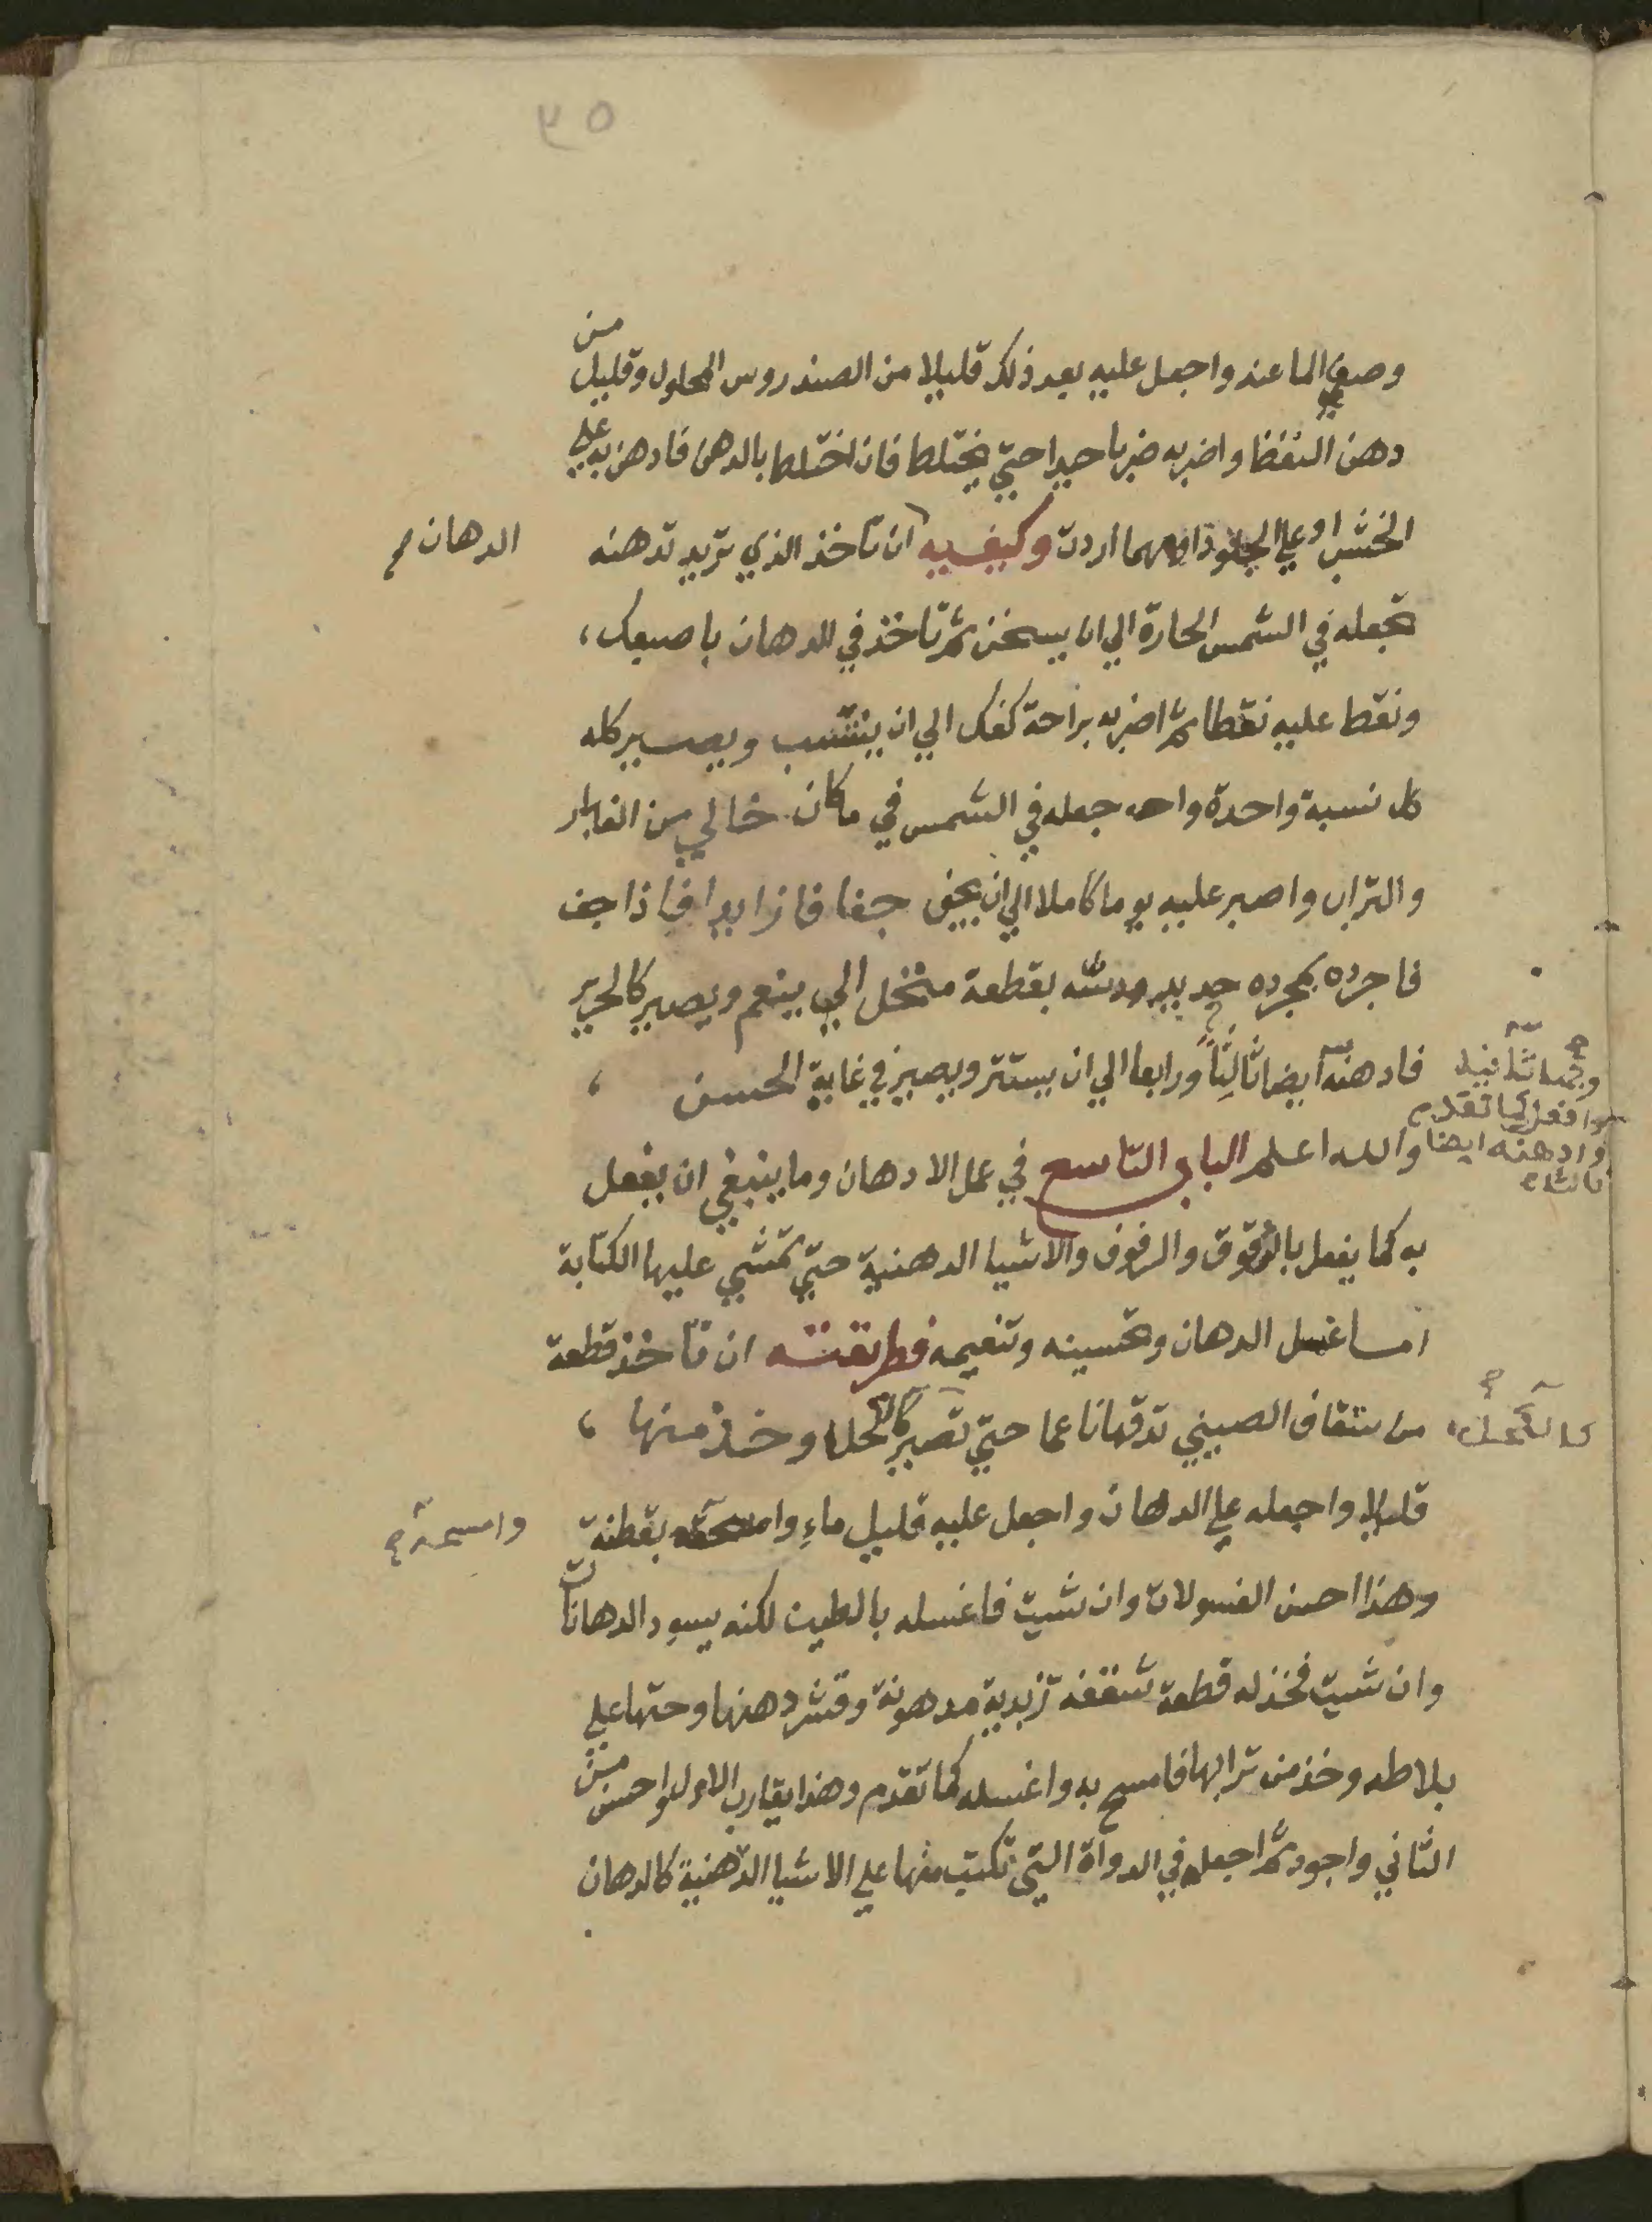 ٣٥
وصفي الما عنه واجعل عليه بعد ذلك قليلا من الصندروس المحلول وقليل من
دهن النفط واضربه ضربا جيدا حتي يختلط فان اختلط بالدهن فادهن به علي
الخشب او علي الجلود او مهما اردت وكيفيه ان تاخذ الذي تريد تدهنه
الدهان
تجعله في الشمس الحارة الي ان يسخن ثم تاخذ في الدهان باصبعك،
ونقط عليه نقطا ثم اضربه براحة كفك الي ان ينتسب ويصير كله
كل نسبة واحدة واجعله في الشمس في مكان خالي من الغبار
والتراب واصبر عليه يوما كاملا الي ان يجف جفافا زايدا فاذا جف
فاجرده بمجرده حديد ودسه بقطعة منخل الي ينعم ويصير كالحرير
فادهنه ايضا ثالثا ورابعا الي ان يستتر ويصير في غاية الحسن ،
ثانيه
وافعل كما تقدم
وادهنه ايضا
ثالثا
والله اعلم الباب التاسع في عمل الادهان وما ينبغي ان يفعل
به كما يفعل بالرقوق والرفوف والاشيا الدهنية حتي تمشي عليها الكتابة
اما غسل الدهان وتحسينه وتنعيمه فطريقته ان تاخذ قطعة
من شقاف الصيني تدقها ناعما حتي تصير كالكحل وخذ منها ،
كالكحل
قليلا واجعله علي الدهان واجعل عليه قليل ماء وامسحه بقطنة
وامسحه
وهذا احسن الغسولات وان شيت فاغسله بالطين لكنه يسود الدهانات
وان شيت فخذ له قطعة شقفة زبدية مدهونة وقشر دهنها وحتها علي
بلاطه وخذ من ترابها فامسح به واغسله كما تقدم وهذا يقارب الاول واحسن من
الثاني واجود ثم اجعله في الدواة التي تكتب منها علي الاشيا الدهنية كالدهان